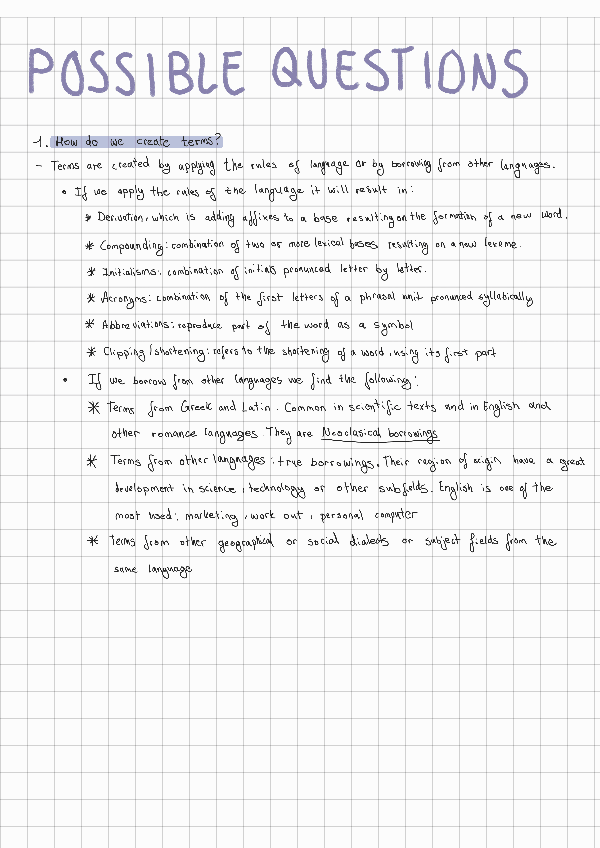 POSSIBLE QUESTIONS
1. How do we create terms?
- Terms are created by applying the rules of language or by borrowing from other languages.
• If we apply the rules of the language it will result in:
* Derivation, which is adding affixes to a base resulting on the formation of a new word.
* Compounding: combination of two or more lexical bases resulting on a new lexeme.
* Initialisms: combination of initials pronunced letter by letter.
* Acronyms: combination of the first letters of a phrasal unit pronunced syllabically
* Abbreviations: reproduce part of the word as a symbol
* Clipping/shortening: refers to the shortening of a word, using its first part
• If we borrow from other languages we find the following:
* Terms from Greek and Latin. Common in scientific texts and in English and
other romance languages They are Neoclasical borrowings
* Terms from other languages: true borrowings. Their region of origin have a great
development in science, technology or other subfields. English is one of the
most used: marketing, work out, personal computer
* Terms from other geographical or social dialects or subject fields from the
same language